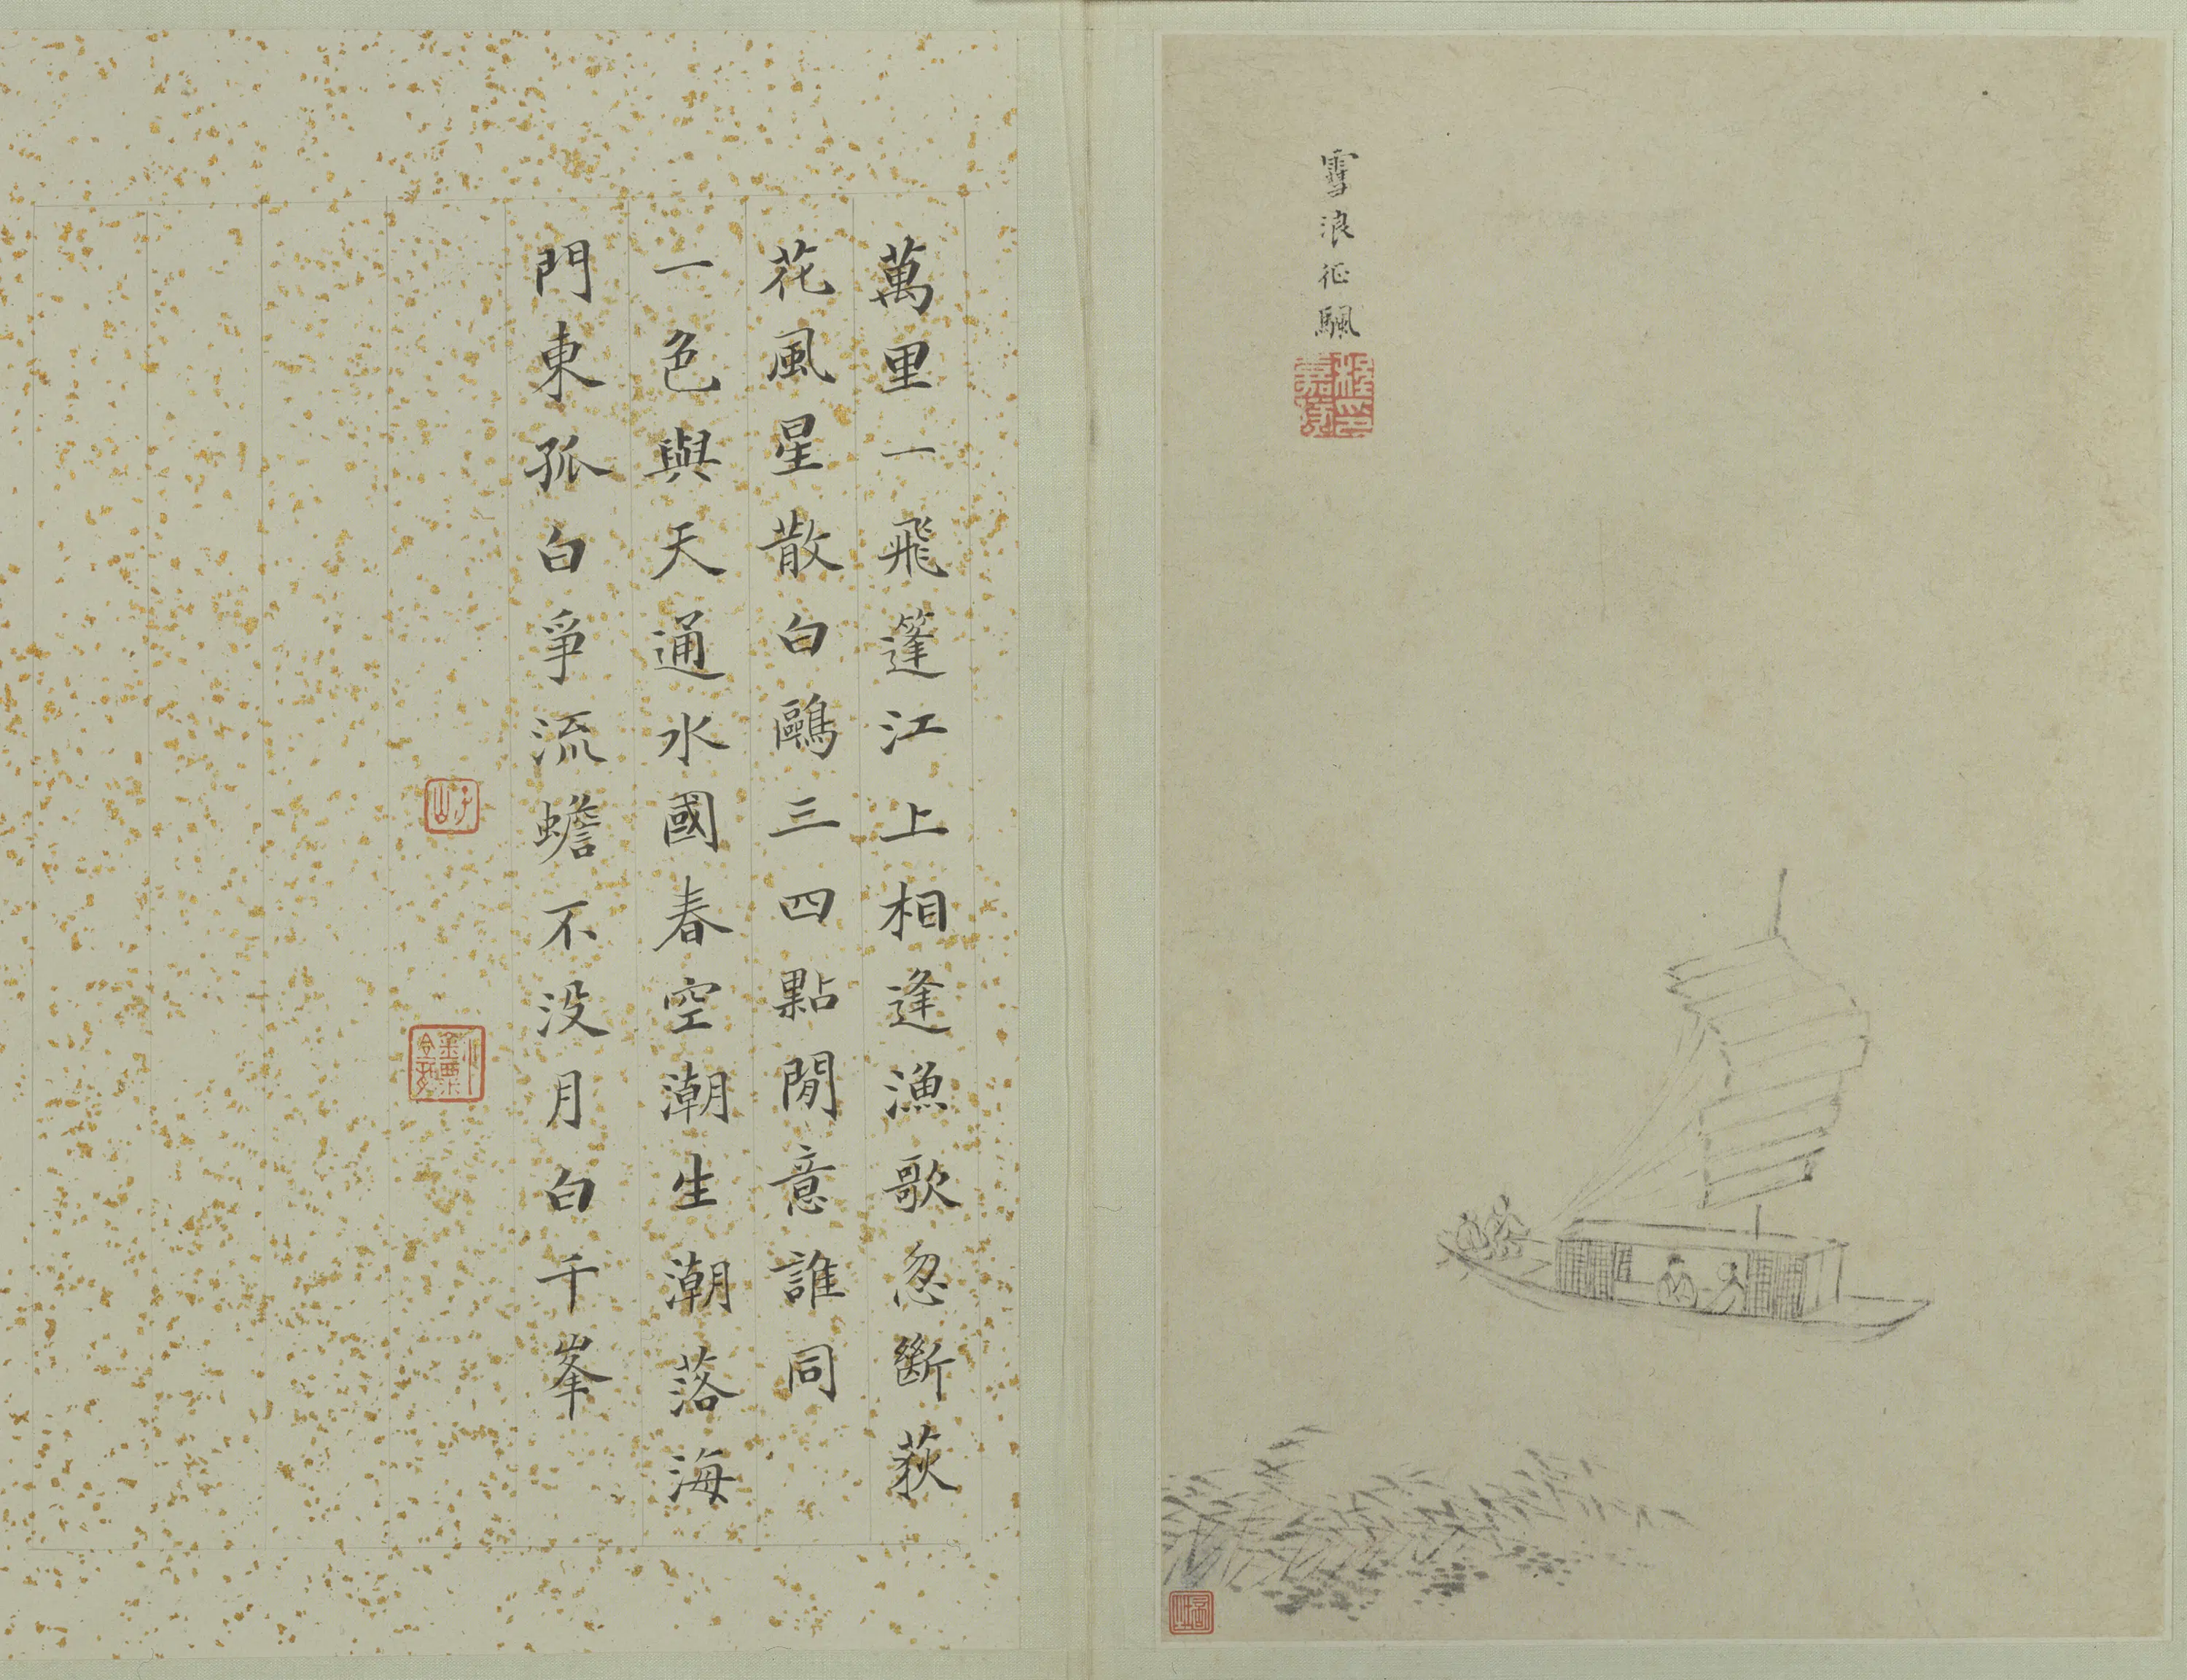 雪浪征颿
程嘉燧印
萬里一飛篷江上相逢漁歌忽斷荻
花風星散白鷗三四點閒意誰同
一色與天通水國春空潮生潮落海
門東孤白爭流蟾不没月白千峯
子山